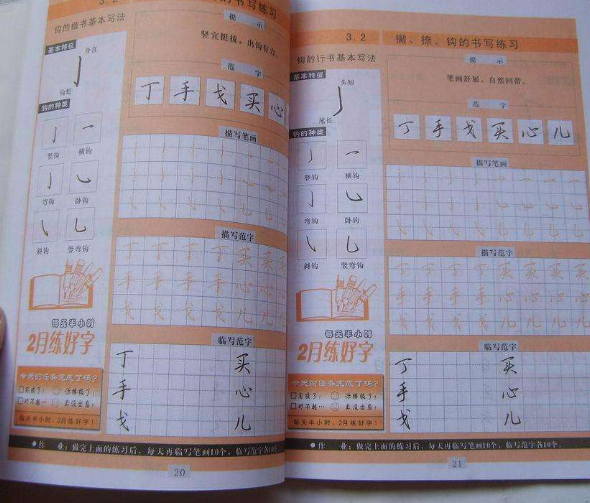 3.2
的书写练习
钩的楷书基本写法
基本特征
身直
钩短
钩的种类
竖钩
横钩
弯钩
卧钩
斜钩
竖弯钩
提 示
竖宜挺拔，出钩有力。
范 字
丁 手 戈 买 心
描写笔画
描写范字
丁 丁 丁 买 买 买
手 手 手 心 心 心
戈 戈 戈 儿 儿 儿
临写范字
丁 买
手 心
戈 儿
每天半小时
2月练好字
今天的任务完成了吗？
每天半小时，2月练好字！
●作 业：做完上面的练习后，每天再临写笔画10个，临写范字各10个。
20
3.2
撇、捺、钩的书写练习
钩的行书基本写法
基本特征
头短
尾长
钩的种类
竖钩
横钩
弯钩
卧钩
斜钩
竖弯钩
提 示
笔画舒展，自然回带。
范 字
丁 手 戈 买 心 儿
描写笔画
描写范字
丁 丁 丁 买 买 买
手 手 手 心 心 心
戈 戈 戈 儿 儿 儿
临写范字
丁 买
手 心
戈 儿
每天半小时
2月练好字
今天的任务完成了吗？
每天半小时，2月练好字！
●作 业：做完上面的练习后，每天再临写笔画10个，临写范字各10个。
21